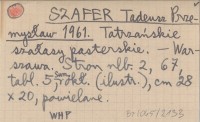 SZAFER Tadeusz Prze-
mysław 1961. Tatrzańskie
szałasy pasterskie. — War-
szawa. Stron nlb. 2, 67,
tabl. 5, rokl. (ilustr.), cm 28
× 20, powielane.
WHP